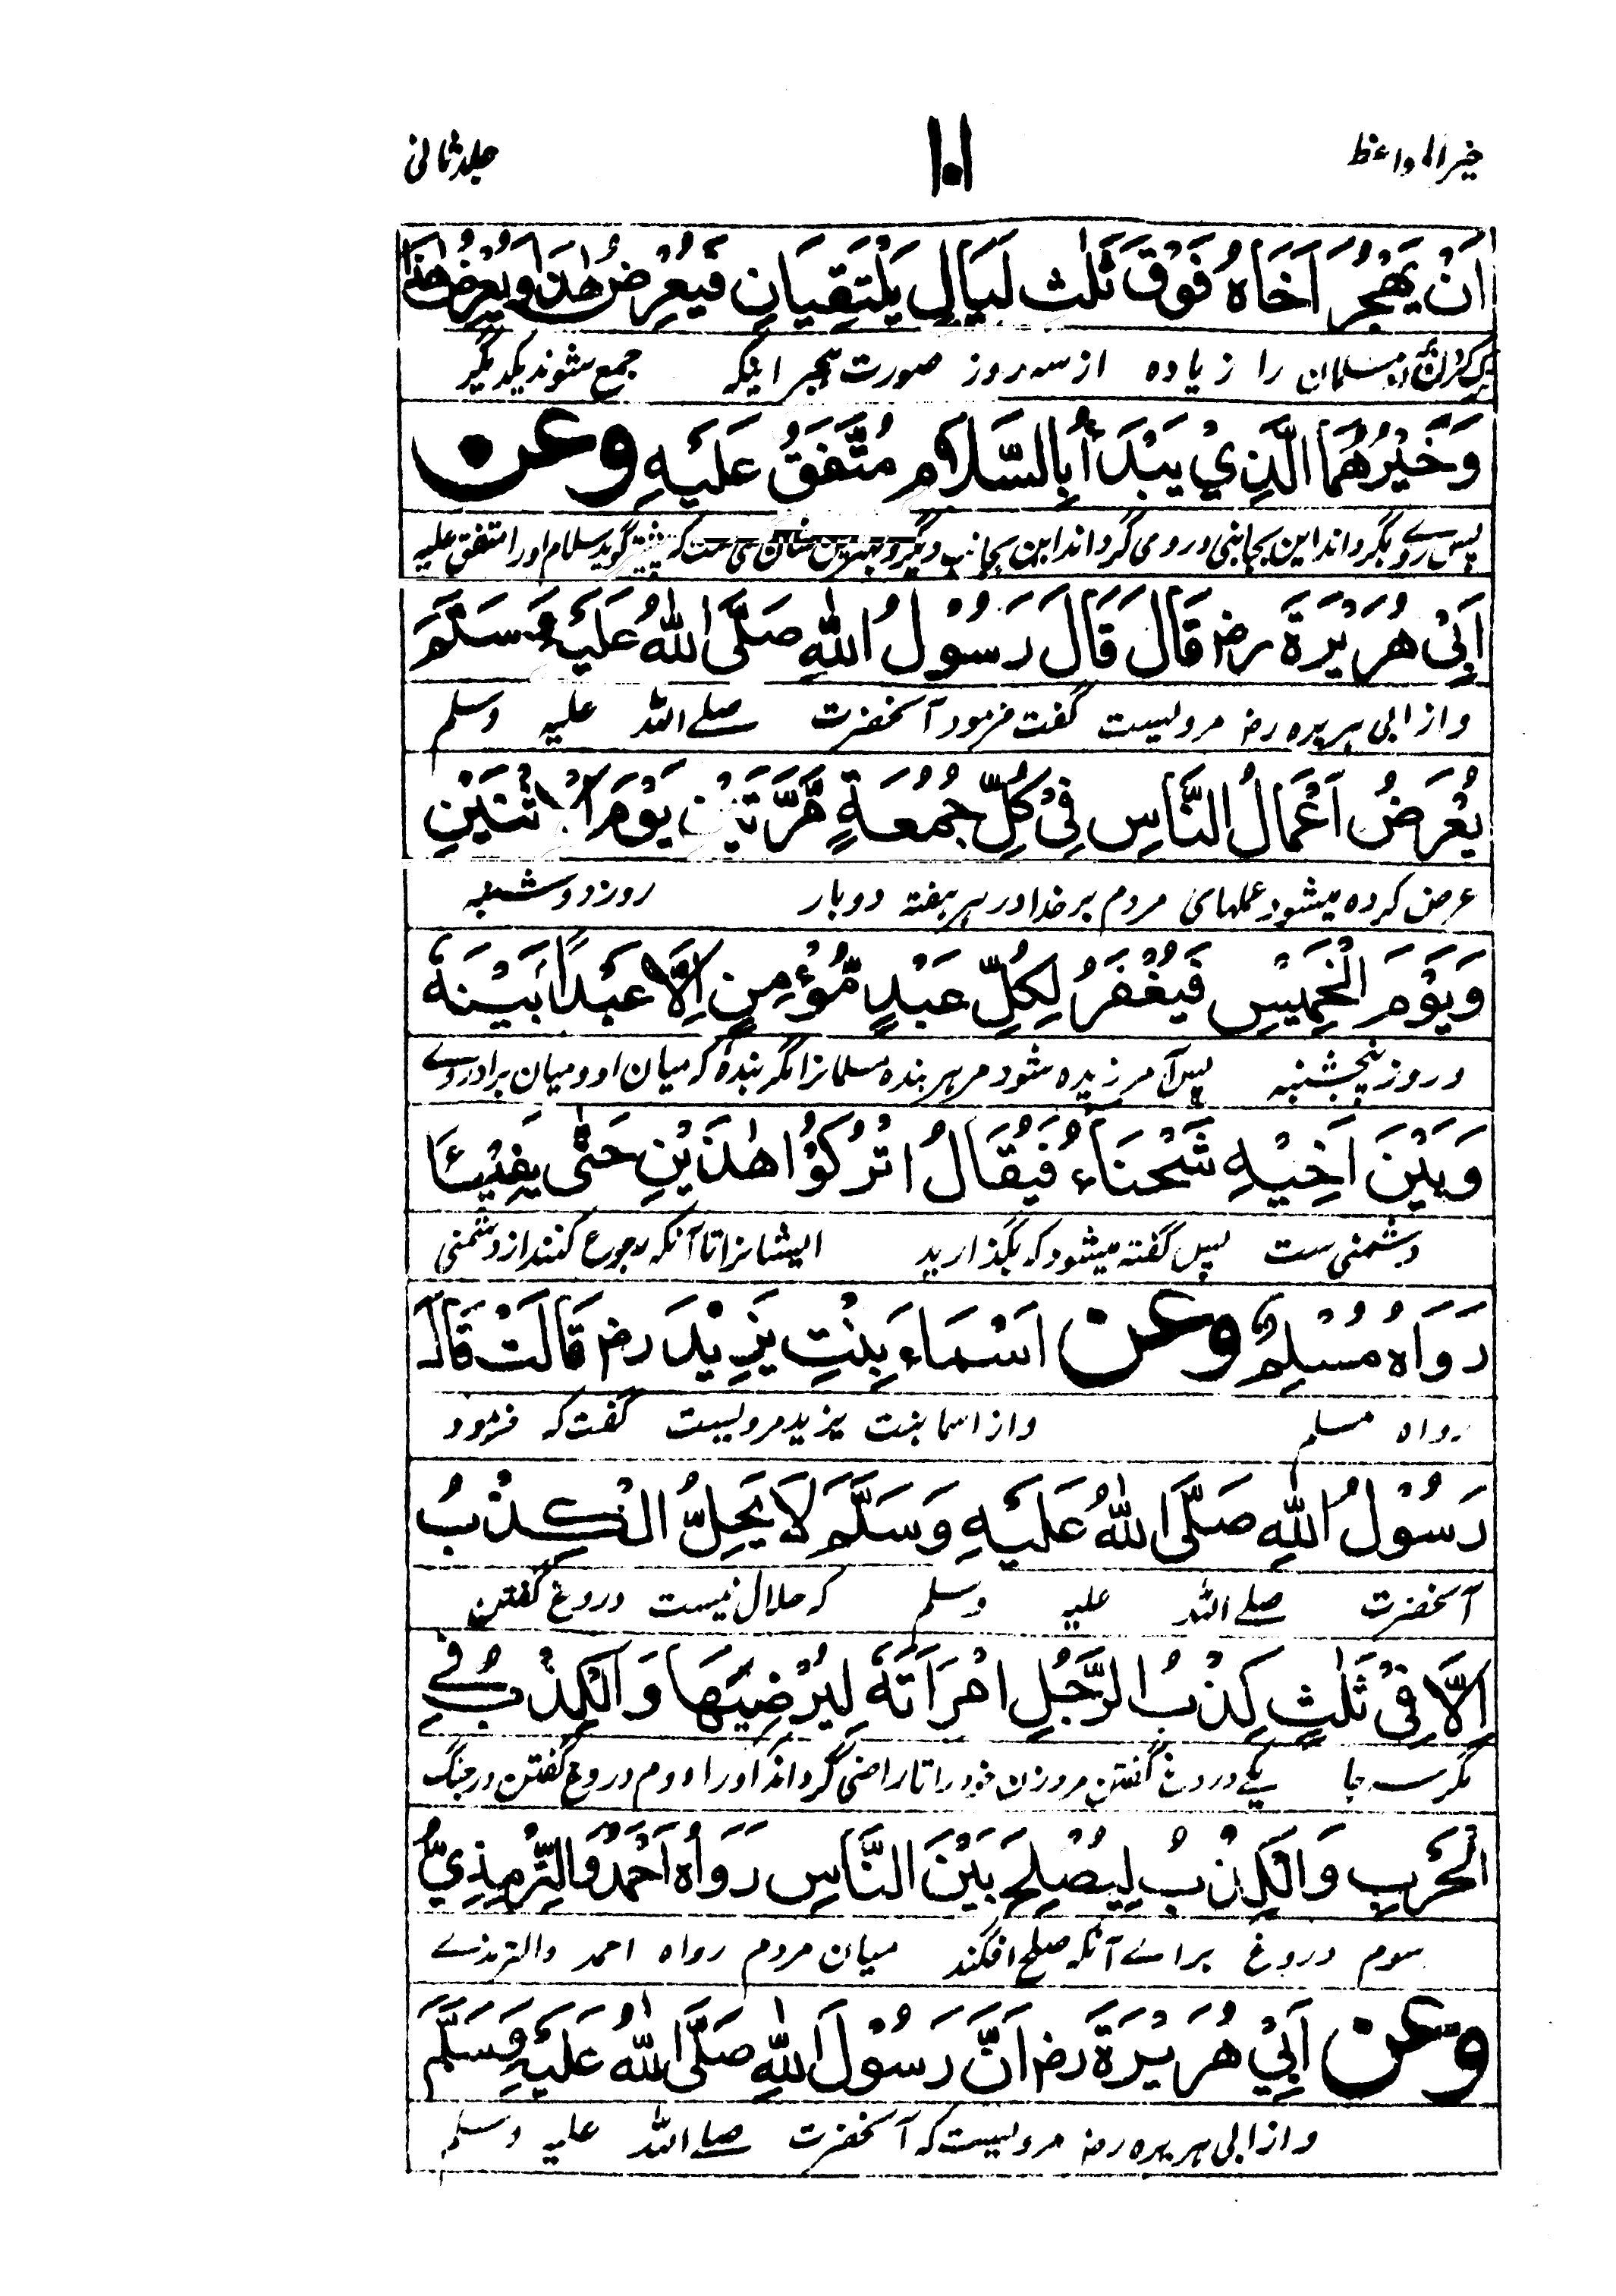 خیر المواعظ
۱۰۱
جلد ثانی
اَنْ يَهْجُرَ اَخَاهُ فَوْقَ ثَلٰثِ لَيَالٍ يَلْتَقِيَانِ فَيُعْرِضُ هٰذَا وَيُعْرِضُ هٰذَا
مسلمان را زیاده از سه روز صورت هجر اینکه جمع شوند یکدیگر
وَخَيْرُهُمَا الَّذِيْ يَبْدَأُ بِالسَّلَامِ مُتَّفَقٌ عَلَيْهِ وعن
پس روے بگرداند این بجانبی و رو می گرداند این بجانب دیگر و بهترین شان کسی ست که پیشتر گوید سلام او را متفق علیه
اَبِيْ هُرَيْرَةَ رض قَالَ قَالَ رَسُوْلُ اللّٰهِ صَلَّى اللّٰهُ عَلَيْهِ وَسَلَّمَ
و از ابی هریره رض مرویست گفت فرمود آنحضرت صلے الله علیه وسلم
يُعْرَضُ اَعْمَالُ النَّاسِ فِيْ كُلِّ جُمُعَةٍ مَّرَّتَيْنِ يَوْمَ الْاِثْنَيْنِ
عرض کرده میشود عملهای مردم بر خدا در هر هفته دو بار روز دوشنبه
وَيَوْمَ الْخَمِيْسِ فَيُغْفَرُ لِكُلِّ عَبْدٍ مُّؤْمِنٍ اِلَّا عَبْدًا بَيْنَهٗ
و روز پنجشنبه پس آمرزیده شود مر هر بنده مسلمانرا مگر بندهٔ که میان او و میان برادر وے
وَبَيْنَ اَخِيْهِ شَحْنَاءُ فَيُقَالُ اتْرُكُوْا هٰذَيْنِ حَتّٰى يَفِيْئَا
دشمنی ست پس گفته میشود که بگذارید ایشانرا تا آنکه رجوع کنند از دشمنی
رَوَاهُ مُسْلِمٌ وعن اَسْمَاءَ بِنْتِ يَزِيْدَ رض قَالَتْ قَالَ
رواه مسلم و از اسما بنت یزید مرویست گفت که فرمود
رَسُوْلُ اللّٰهِ صَلَّى اللّٰهُ عَلَيْهِ وَسَلَّمَ لَا يَحِلُّ الْكِذْبُ
آنحضرت صلے الله علیه وسلم که حلال نیست دروغ گفتن
اِلَّا فِيْ ثَلٰثٍ كِذْبُ الرَّجُلِ امْرَاَتَهٗ لِيُرْضِيَهَا وَالْكِذْبُ فِي
مگر سه جا یکے دروغ گفتن مر وزن خود را تا راضی گرداند او را دوم دروغ گفتن در جنگ
الْحَرْبِ وَالْكِذْبُ لِيُصْلِحَ بَيْنَ النَّاسِ رَوَاهُ اَحْمَدُ وَالتِّرْمِذِيُّ
سوم دروغ براے آنکه صلح افکند میان مردم رواه احمد والترمذے
وعن اَبِيْ هُرَيْرَةَ رض اَنَّ رَسُوْلَ اللّٰهِ صَلَّى اللّٰهُ عَلَيْهِ وَسَلَّمَ
و از ابی هریره رض مرویست که آنحضرت صلے الله علیه وسلم